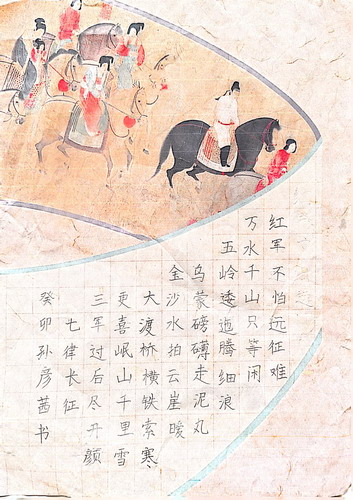 红军不怕远征难
万水千山只等闲
五岭逶迤腾细浪
乌蒙磅礴走泥丸
金沙水拍云崖暖
大渡桥横铁索寒
更喜岷山千里雪
三军过后尽开颜
七律长征
癸卯孙彦茜书